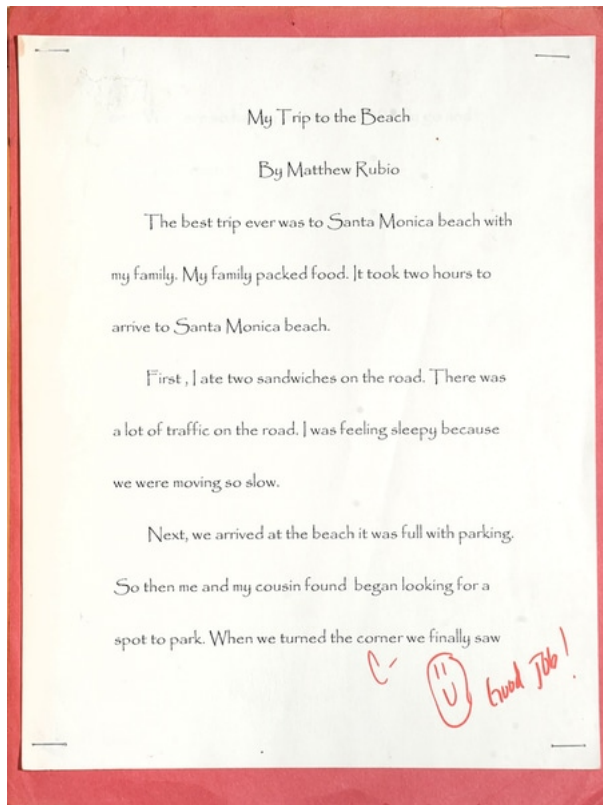 My Trip to the Beach
By Matthew Rubio
The best trip ever was to Santa Monica beach with
my family. My family packed food. It took two hours to
arrive to Santa Monica beach.
First , I ate two sandwiches on the road. There was
a lot of traffic on the road. I was feeling sleepy because
we were moving so slow.
Next, we arrived at the beach it was full with parking.
So then me and my cousin found began looking for a
spot to park. When we turned the corner we finally saw
C-
Good Job!